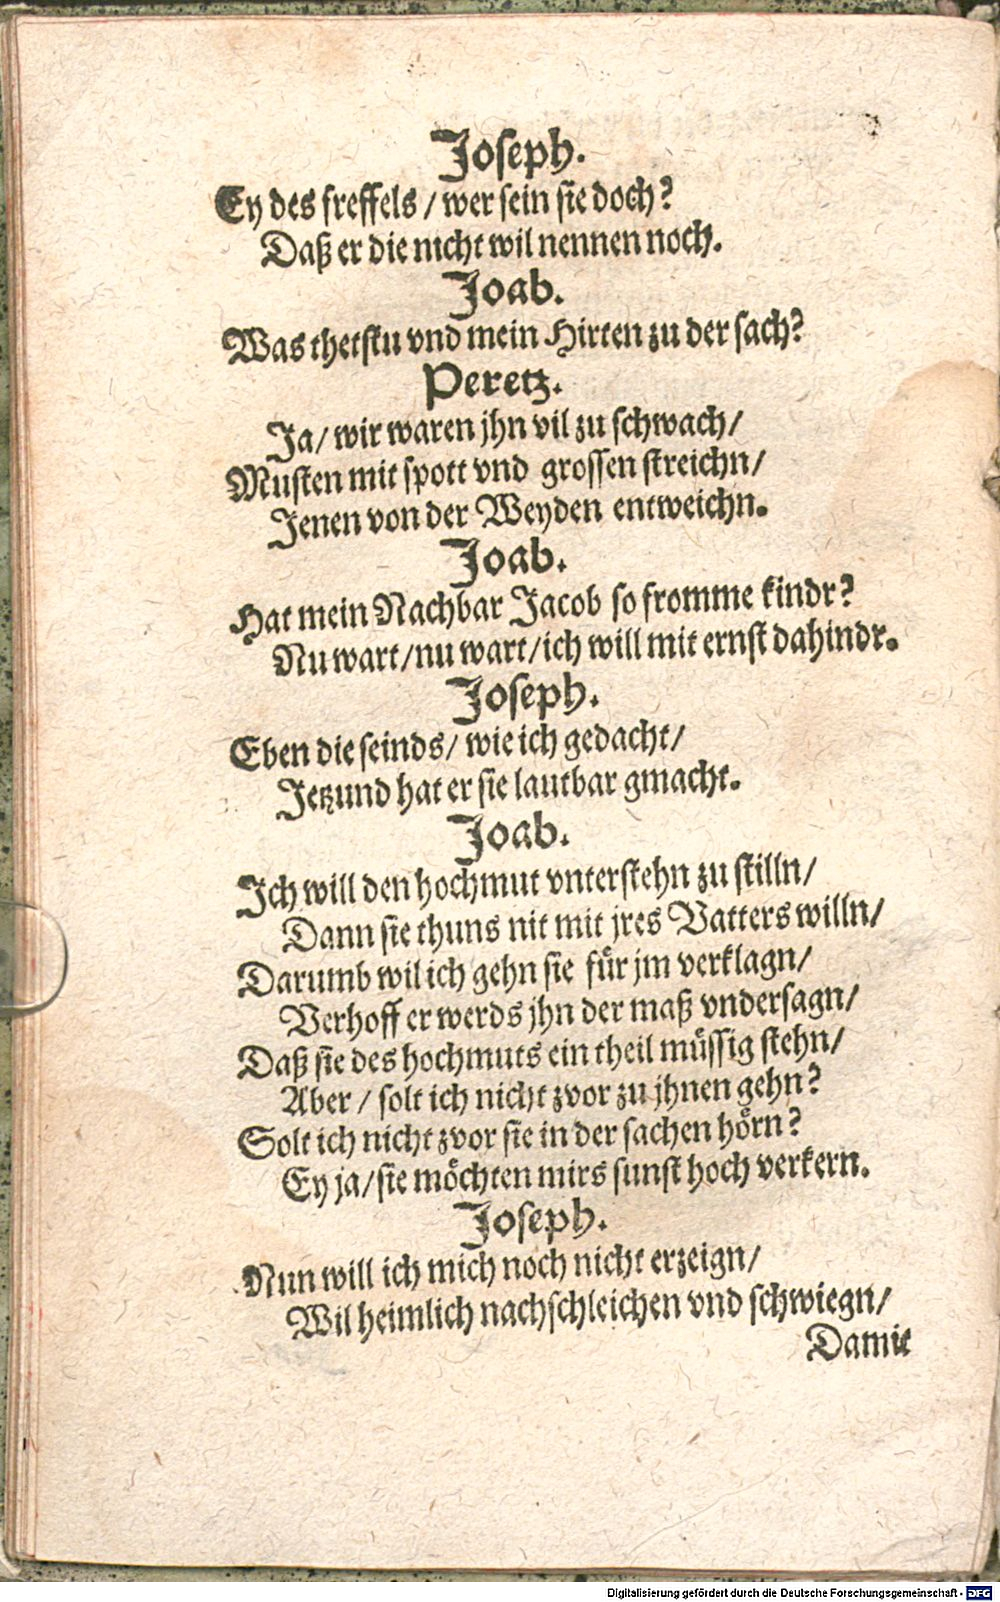 Joseph.
Ey des freffels / wer sein sie doch?
Daß er die nicht wil nennen noch.
Joab.
Was thetstu vnd mein Hirten zu der sach?
Peretz.
Ja / wir waren jhn vil zu schwach /
Musten mit spott vnd grossen streichn /
Jenen von der Weyden entweichn.
Joab.
Hat mein Nachbar Jacob so fromme kindr?
Nu wart / nu wart / ich will mit ernst dahindr.
Joseph.
Eben die seinds / wie ich gedacht /
Jetzund hat er sie lautbar gmacht.
Joab.
Ich will den hochmut vnterstehn zu stilln /
Dann sie thuns nit mit jres Vatters willn /
Darumb wil ich gehn sie für jm verklagn /
Verhoff er werds jhn der maß vndersagn /
Daß sie des hochmuts ein theil müssig stehn /
Aber / solt ich nicht zvor zu jhnen gehn?
Solt ich nicht zvor sie in der sachen hörn?
Ey ja / sie möchten mirs sunst hoch verkern.
Joseph.
Nun will ich mich noch nicht erzeign /
Wil heimlich nachschleichen vnd schwiegn /
Damit
Digitalisierung gefördert durch die Deutsche Forschungsgemeinschaft - DFG